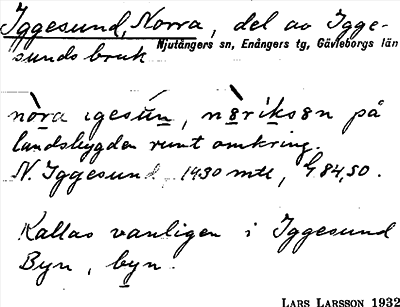 Iggesund, Norra, del av Igge-
sunds bruk
Njutångers sn, Enångers tg, Gävleborgs län
nòra ıgesùn, nə̀rıksən på
landsbygden runt omkring.
N. Iggesund, 1930 mtl, 84,50.
Kallas vanligen i Iggesund
Byn, byn.
LARS LARSSON 1932